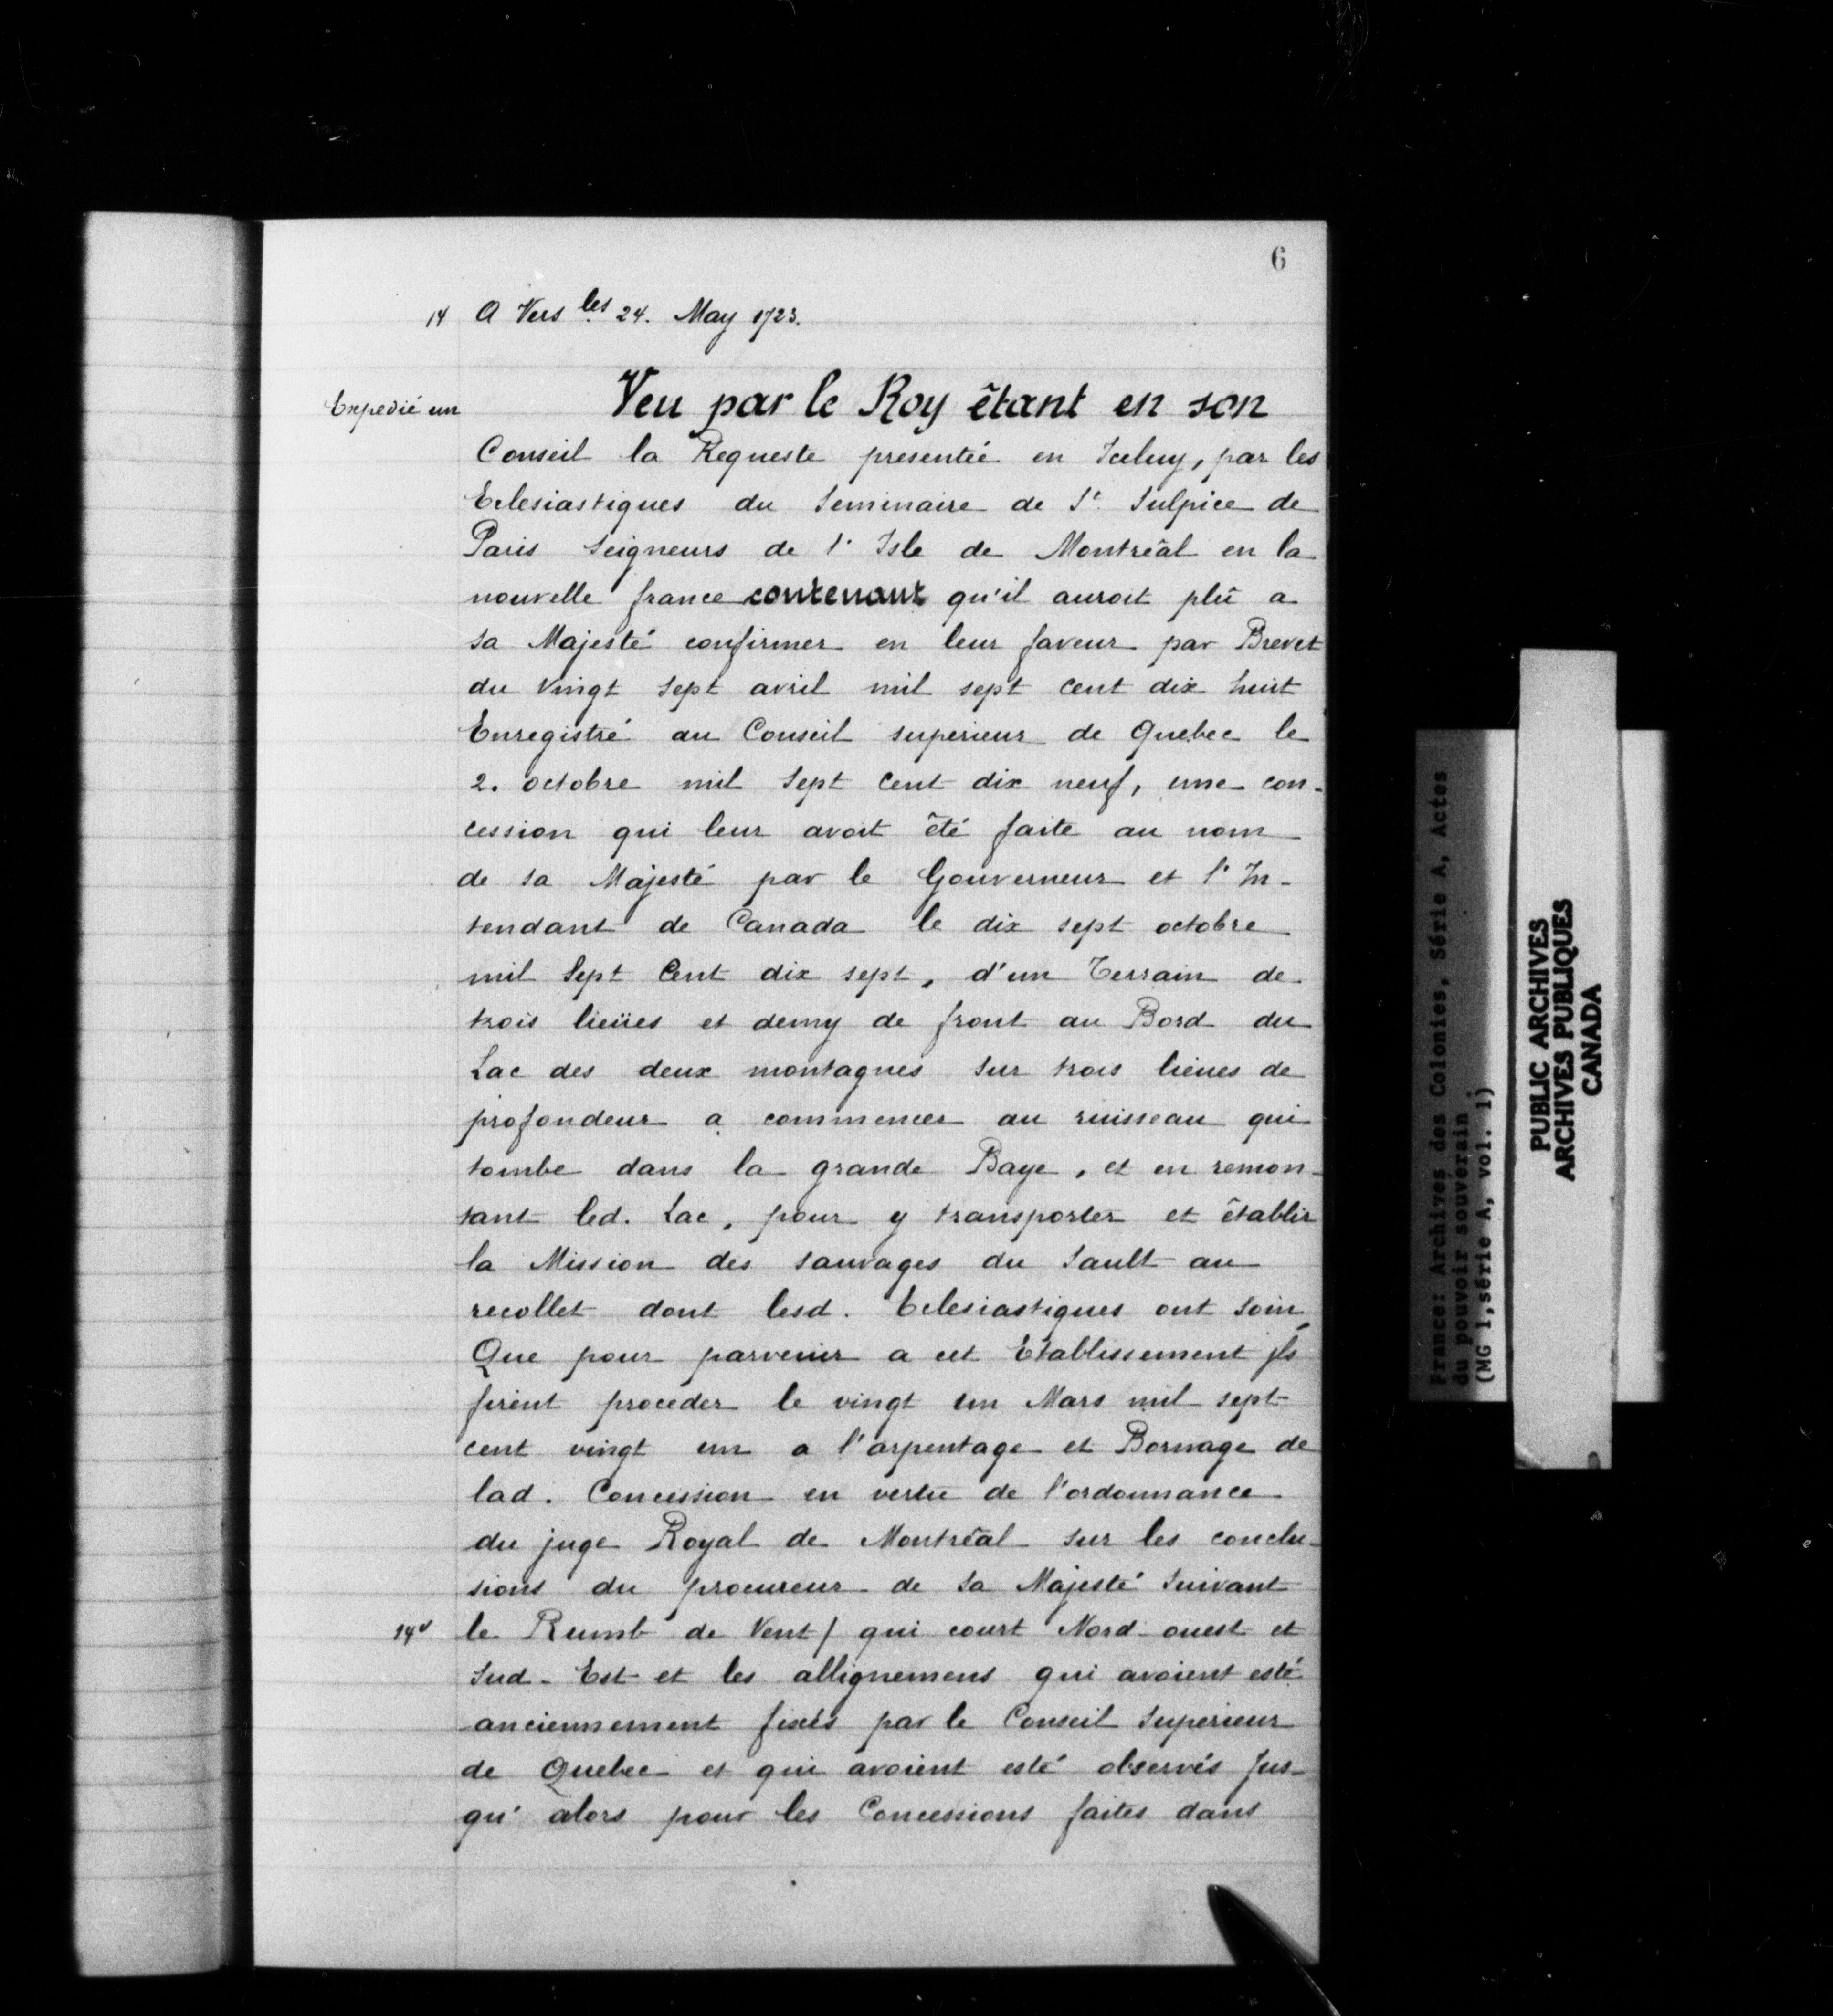 6
14 A Vers les 24. May 1723.
Expedié un
Veu par le Roy êtant en son
Conseil la Requeste presentée en Iceluy, par les
Eclesiastiques du Seminaire de St. Sulpice de
Paris Seigneurs de l'Isle de Montreâl en la
nouvelle france contenant qu'il auroit plû a
sa Majesté confirmer en leur faveur par Brevet
du Vingt Sept avril mil sept cent dix huit
Enregistré au Conseil superieur de Quebec le
2. octobre mil Sept Cent dix neuf, une con-
cession qui leur avoit êté faite au nom
de sa Majesté par le Gouverneur et l'In-
tendant de Canada le dix sept octobre
mil Sept Cent dix sept, d'un Terrain de
trois lieües et demy de front au Bord du
Lac des deux montagnes Sur trois lieues de
profondeur a commencer au ruisseau qui
tombe dans la grande Baye, et en remon-
tant led. Lac, pour y transporter et êtablir
la Mission des sauvages du Sault au
recollet dont lesd. Eclesiastiques ont Soin,
Que pour parvenir a cet Etablissement jls
firent proceder le vingt un Mars mil sept
cent vingt un a l'arpentage et Bornage de
lad. Concession en vertu de l'ordonnance
du juge Royal de Montreâl sur les conclu-
sions du procureur de Sa Majesté Suivant
14v le Rumb de Vent / qui court Nord-ouest et
Sud-Est et les allignemens qui avoient esté
anciennement fixés par le Conseil Superieur
de Quebec et qui avoient esté observés Jus-
qu'alors pour les Concessions faites dans
France: Archives des Colonies, Série A, Actes
du pouvoir souverain
(MG 1,série A, vol. 1)
PUBLIC ARCHIVES
ARCHIVES PUBLIQUES
CANADA